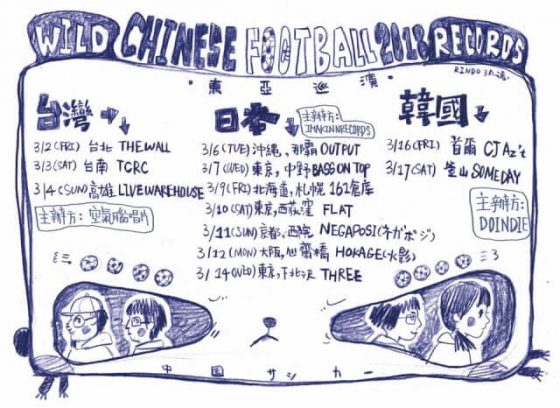 WILD CHINESE FOOTBALL 2018 RECORDS
東亞巡演
台灣
3/2(FRI) 台北 THE WALL
3/3(SAT) 台南 TCRC
3/4(SUN) 高雄 LIVE WAREHOUSE
主辦方:空氣腦唱片
日本
主辦方:
IMAKINNRECORDS
3/6(TUE) 沖繩,那霸 OUTPUT
3/7(WED) 東京,中野 BASS ON TOP
3/9(FRI) 北海道,札幌 161倉庫
3/10(SAT) 東京,西荻窪 FLAT
3/11(SUN) 京都,西院 NEGAPOSI(ネガポジ)
3/12(MON) 大阪,心齋橋 HOKAGE(火影)
3/14(WED) 東京,下北沢 THREE
韓國
3/16(FRI) 首爾 CJ Az't
3/17(SAT) 釜山 SOMEDAY
主辦方:
DOINDIE
中国サッカー